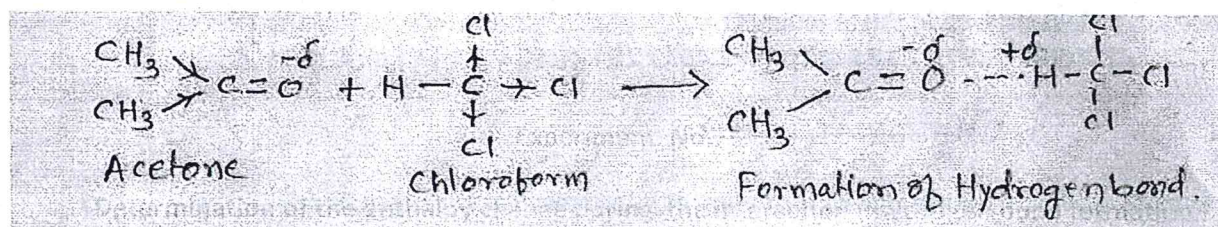 CH3 CH3 C=O -δ + H-C-Cl Cl Cl → CH3 CH3 C=O -δ ---- +δ H-C-Cl Cl Cl
Acetone Chloroform Formation of Hydrogen bond.